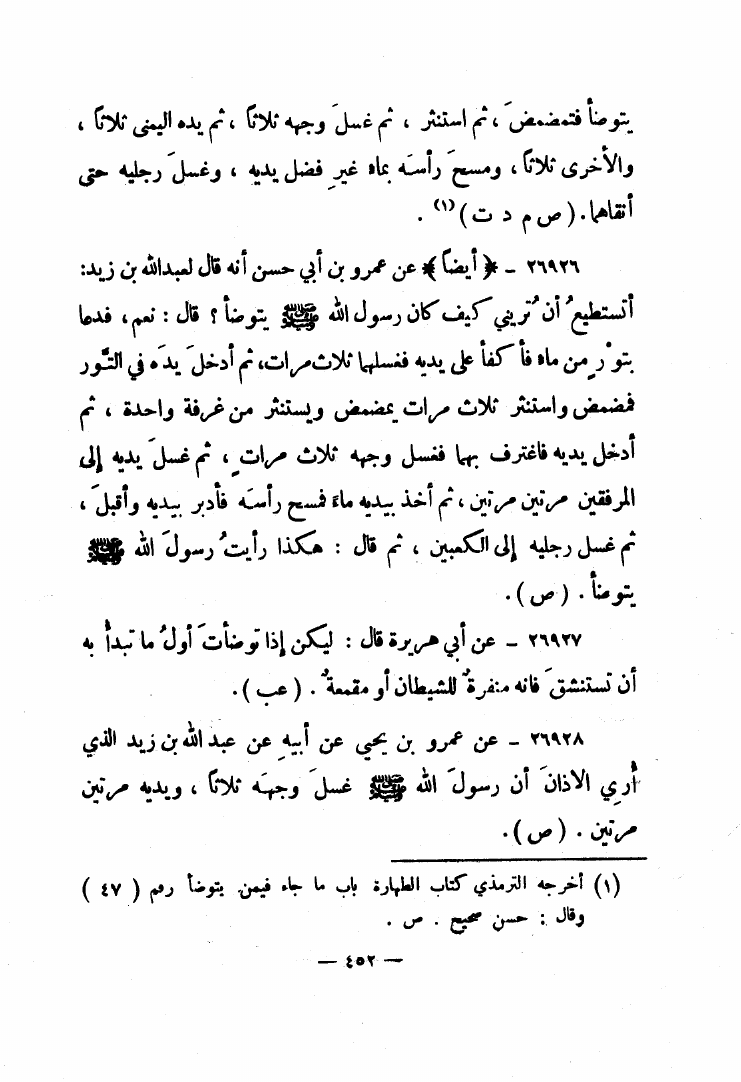 يتوضأ فتمضمضَ ، ثم استنثر ، ثم غسلَ وجهه ثلاثاً ، ثم يده اليمنى ثلاثاً ،
والأخرى ثلاثاً ، ومسحَ رأسَه بماء غيرِ فضل يديه ، وغسلَ رجليه حتى
أنقاهما . ( ص م د ت ) (١) .
٢٦٩٢٦ - ﴿ أيضاً ﴾ عن عمرو بن أبي حسن أنه قال لعبدالله بن زيد :
أتستطيعُ أن تُريني كيف كان رسول الله ﷺ يتوضأ ؟ قال : نعم ، فدعا
بتَوْرٍ من ماء فأكفأ على يديه فغسلها ثلاث مرات ، ثم أدخلَ يدَه في التَّور
فمضمض واستنثر ثلاث مرات يمضمض ويستنثر من غرفة واحدة ، ثم
أدخل يديه فاغترف بهما فغسل وجهه ثلاث مراتٍ ، ثم غسلَ يديه إلى
المرفقين مرتين مرتين ، ثم أخذ بيديه ماءً فمسح رأسَه فأدبر بيديه وأقبلَ ،
ثم غسل رجليه إلى الكعبين ، ثم قال : هكذا رأيتُ رسولَ الله ﷺ
يتوضأ . ( ص ) .
٢٦٩٢٧ - عن أبي هريرة قال : ليكن إذا توضأتَ أولُ ما تبدأ به
أن تستنشقَ فانه منفرةٌ للشيطان أو مقمعةٌ . ( عب ) .
٢٦٩٢٨ - عن عمرو بن يحيي عن أبيهِ عن عبد الله بن زيد الذي
أُرِي الاذانَ أن رسولَ الله ﷺ غسلَ وجهَه ثلاثاً ، ويديه مرتين
مرتين . ( ص ) .
(١) أخرجه الترمذي كتاب الطهارة باب ما جاء فيمن يتوضأ رقم ( ٤٧ )
وقال : حسن صحيح . ص .
— ٤٥٢ —